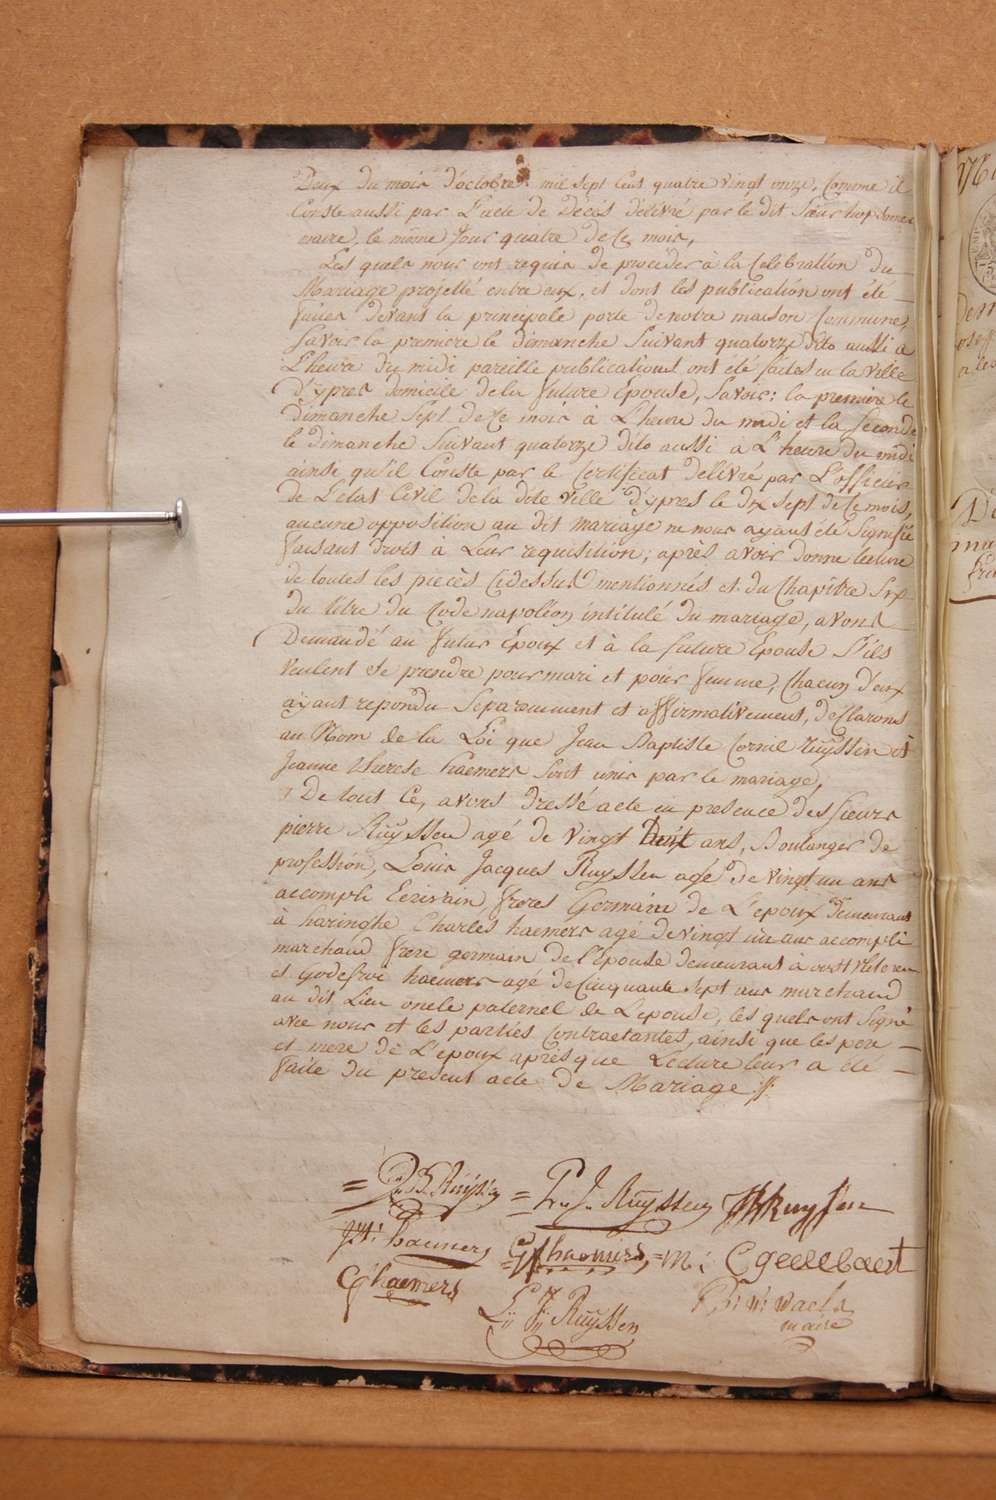 Deux du mois d'octobre mil sept cent quatre vingt onze, comme il
Conste aussi par L'acte de Décés délivré par le dit Sieur
maire, le même jour quatre de ce mois,
Les quels nous ont requis de proceder à la Celebration du
Mariage projetté entre eux, et dont les publication ont été
faites devant la principale porte de notre maison Commune,
Savoir la premiere le dimanche Suivant quatorze dito aussi à
L'heure du midi pareille publications ont été faites en la ville
D'ypres domicile de la future Epouse, Savoir: la premiere le
dimanche Sept de ce mois à L'heure du midi et la Seconde
le dimanche Suivant quatorze dito aussi à L'heure du midi
ainsi qu'il Conste par le Certificat delivré par L'officier
de L'état Civil de la dite ville d'ypres le dix sept de ce mois,
aucune opposition au dit mariage ne nous ayant été Signifié
faisant droit à Leur requisition; après avoir donné lecture
de toutes les pieces Cidessus mentionnés et du Chapitre Six
du titre du Code napoléon intitulé du mariage, avons
Demandé au futur Epoux et à la future Epouse S'ils
veulent Se prendre pour mari et pour femme, Chacun d'eux
ayant repondu Separement et affirmativement, declarons
au Nom de la Loi que Jean Baptiste Cornil ruyssen et
Jeanne therese haemers Sont unis par le mariage,
De tout Ce, avons dressé acte en presence des Sieurs
pierre Ruyssen agé de vingt Deux ans, Boulanger de
profession, Louis Jacques Ruyssen agé de vingt un ans
accompli Ecrivain freres Germain de L'epoux demeurant
à haringhe Charles haemers agé de vingt un ans accompli
marchand frere germain de l'epouse demeurant à oostvleteren
et godefroi haemers agé de Cinquante Sept ans marchand
au dit Lieu oncle paternel de L'epouse, les quels ont Signé
avec nous et les parties Contractantes, ainsi que les pere
et mere de L'epoux après que Lecture leur a été
faite du present acte de Mariage
= J. B. C. Ruyssen = P. J. Ruyssen Ruyssen
J. T. haemers = G. f. haemers, = M: C geeelbaert
C haemers
L. J. Ruyssen
maire